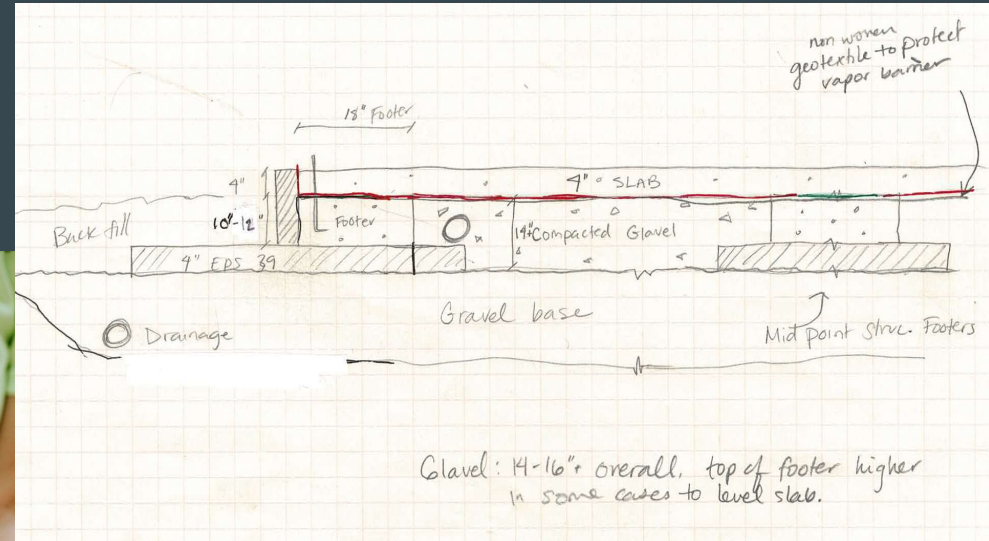 non woven
geotextile to protect
vapor barrier
18" Footer
4"
4" SLAB
10"-12"
Back fill
Footer
14" Compacted Glavel
4" EPS 39
Gravel base
Drainage
Mid point struc. Footers
Glavel: 14-16"+ overall. top of footer higher
in some cases to level slab.